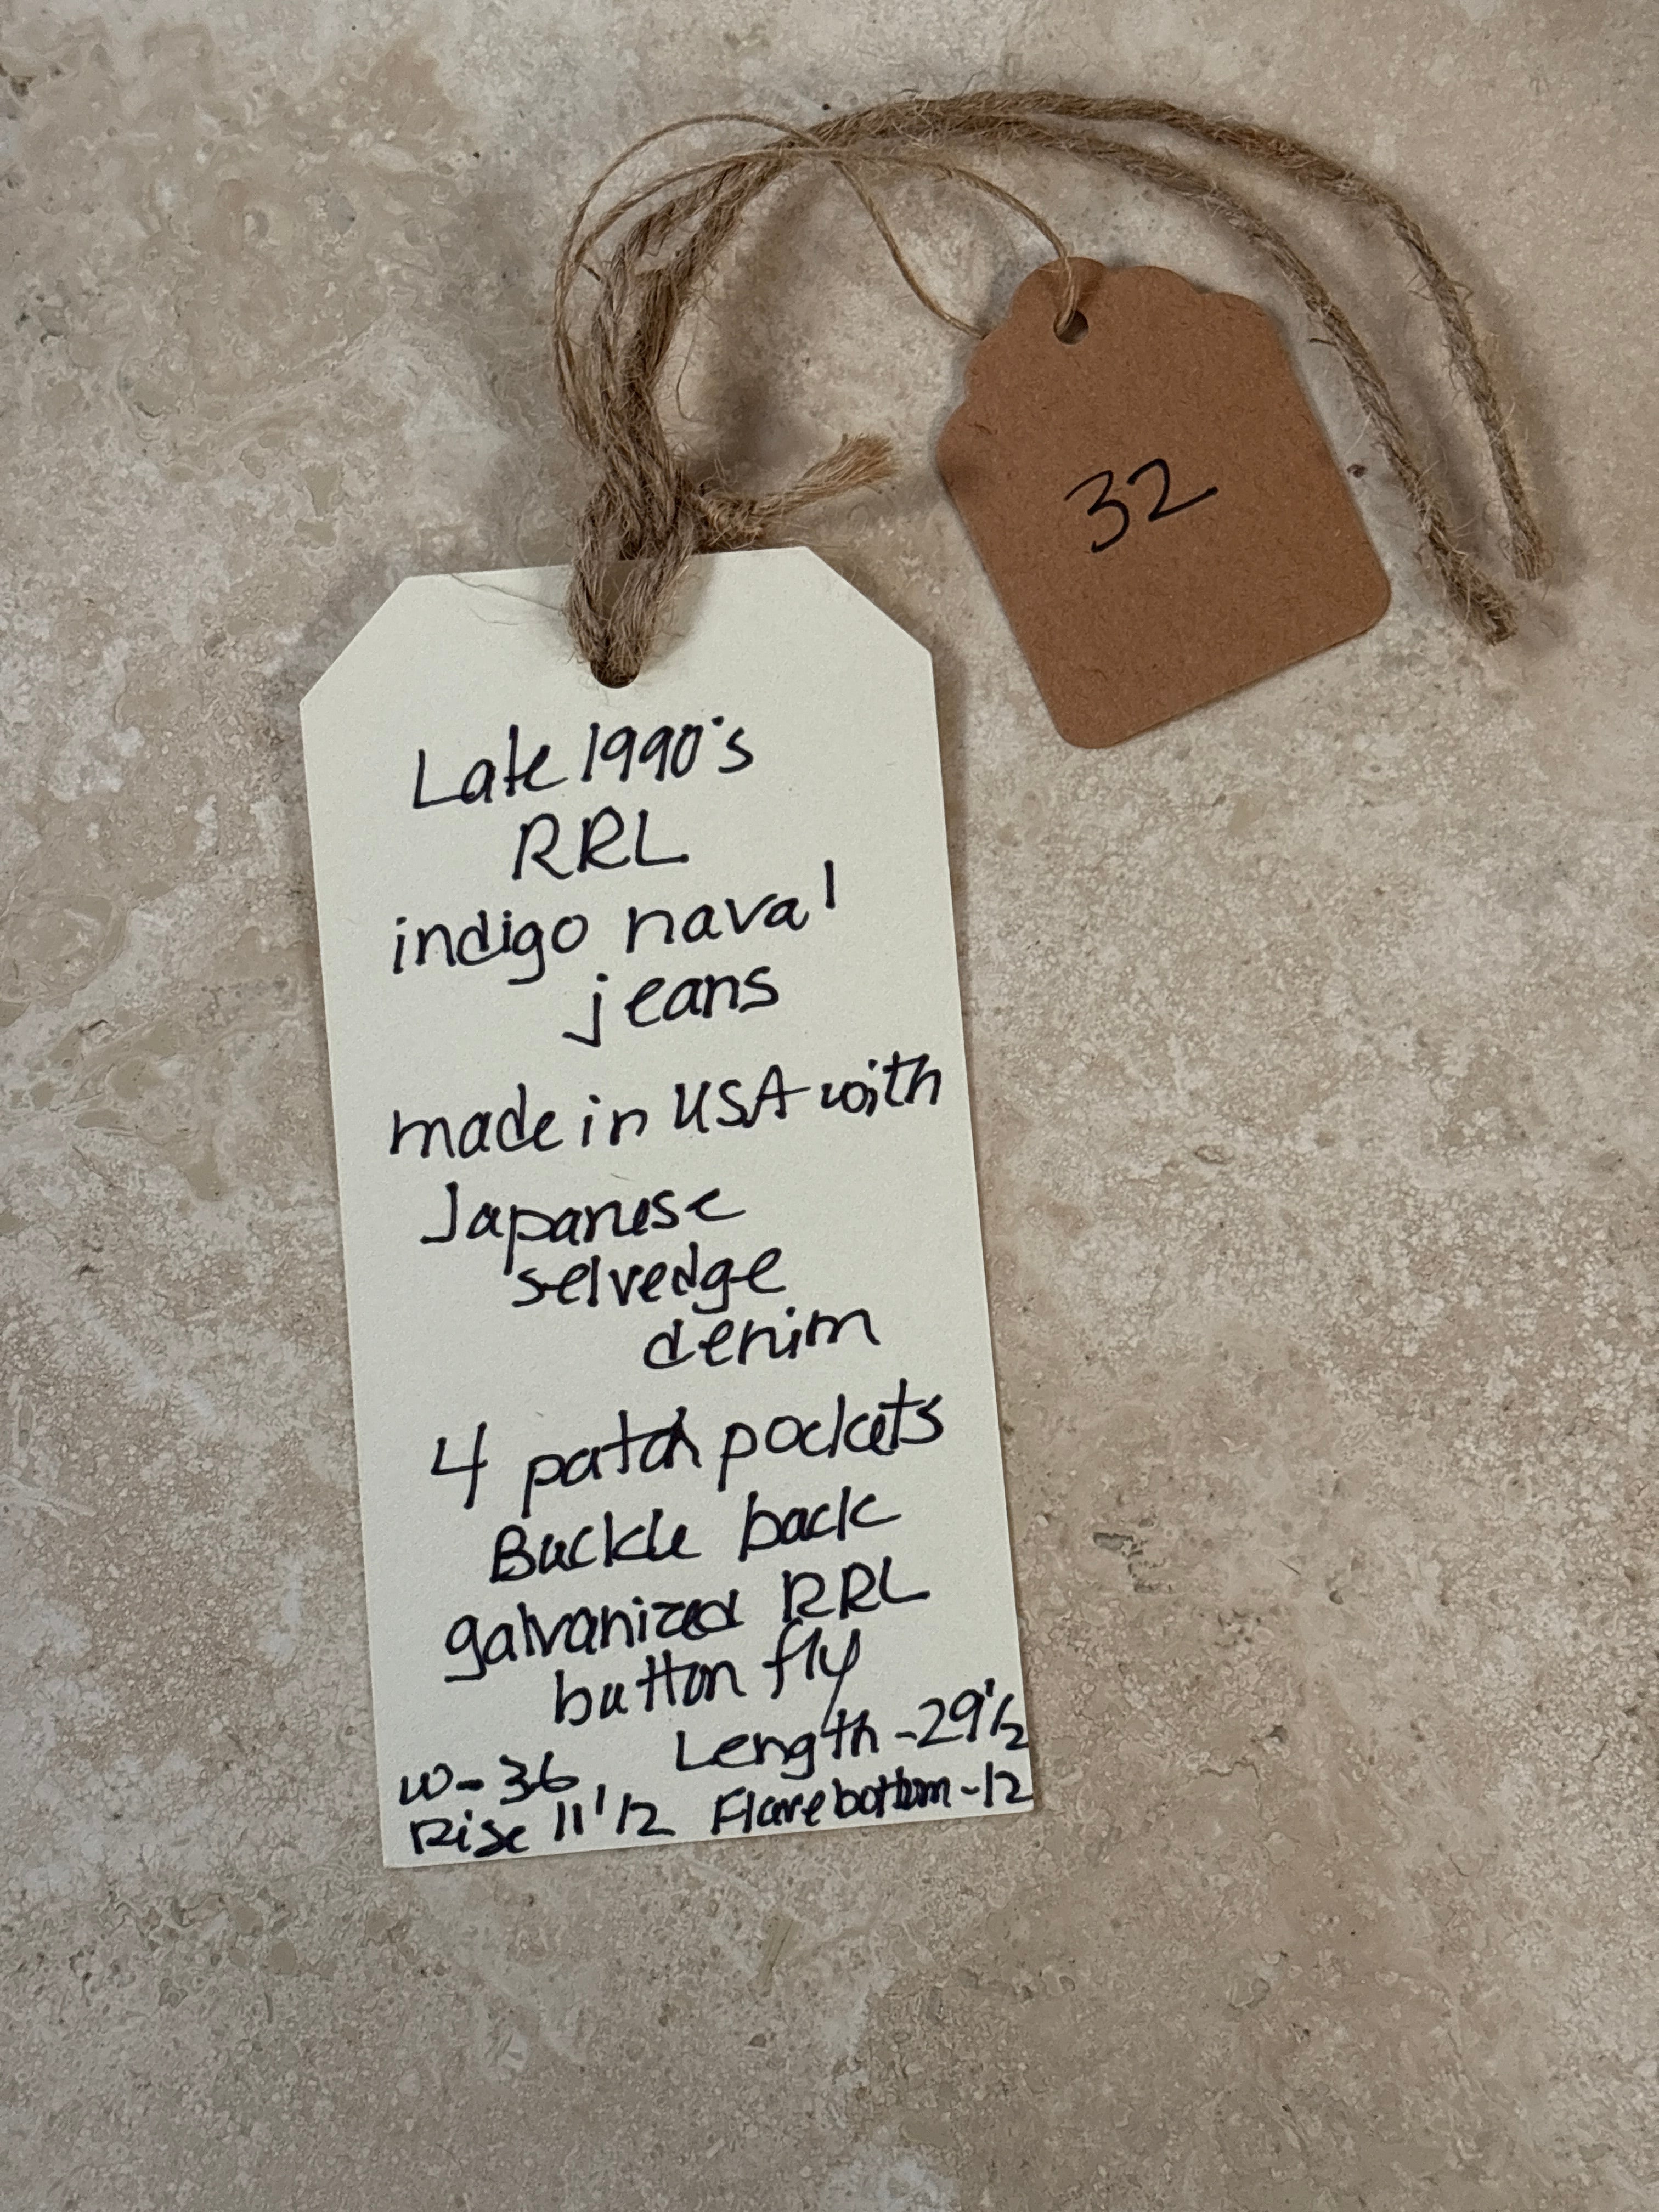 32
Late 1990's
RRL
indigo naval
jeans
made in USA with
Japanese
selvedge
denim
4 patch pockets
Buckle back
galvanized RRL
button fly
W-36 Length-29 1/2
Rise 11 1/2 Flare bottom-12